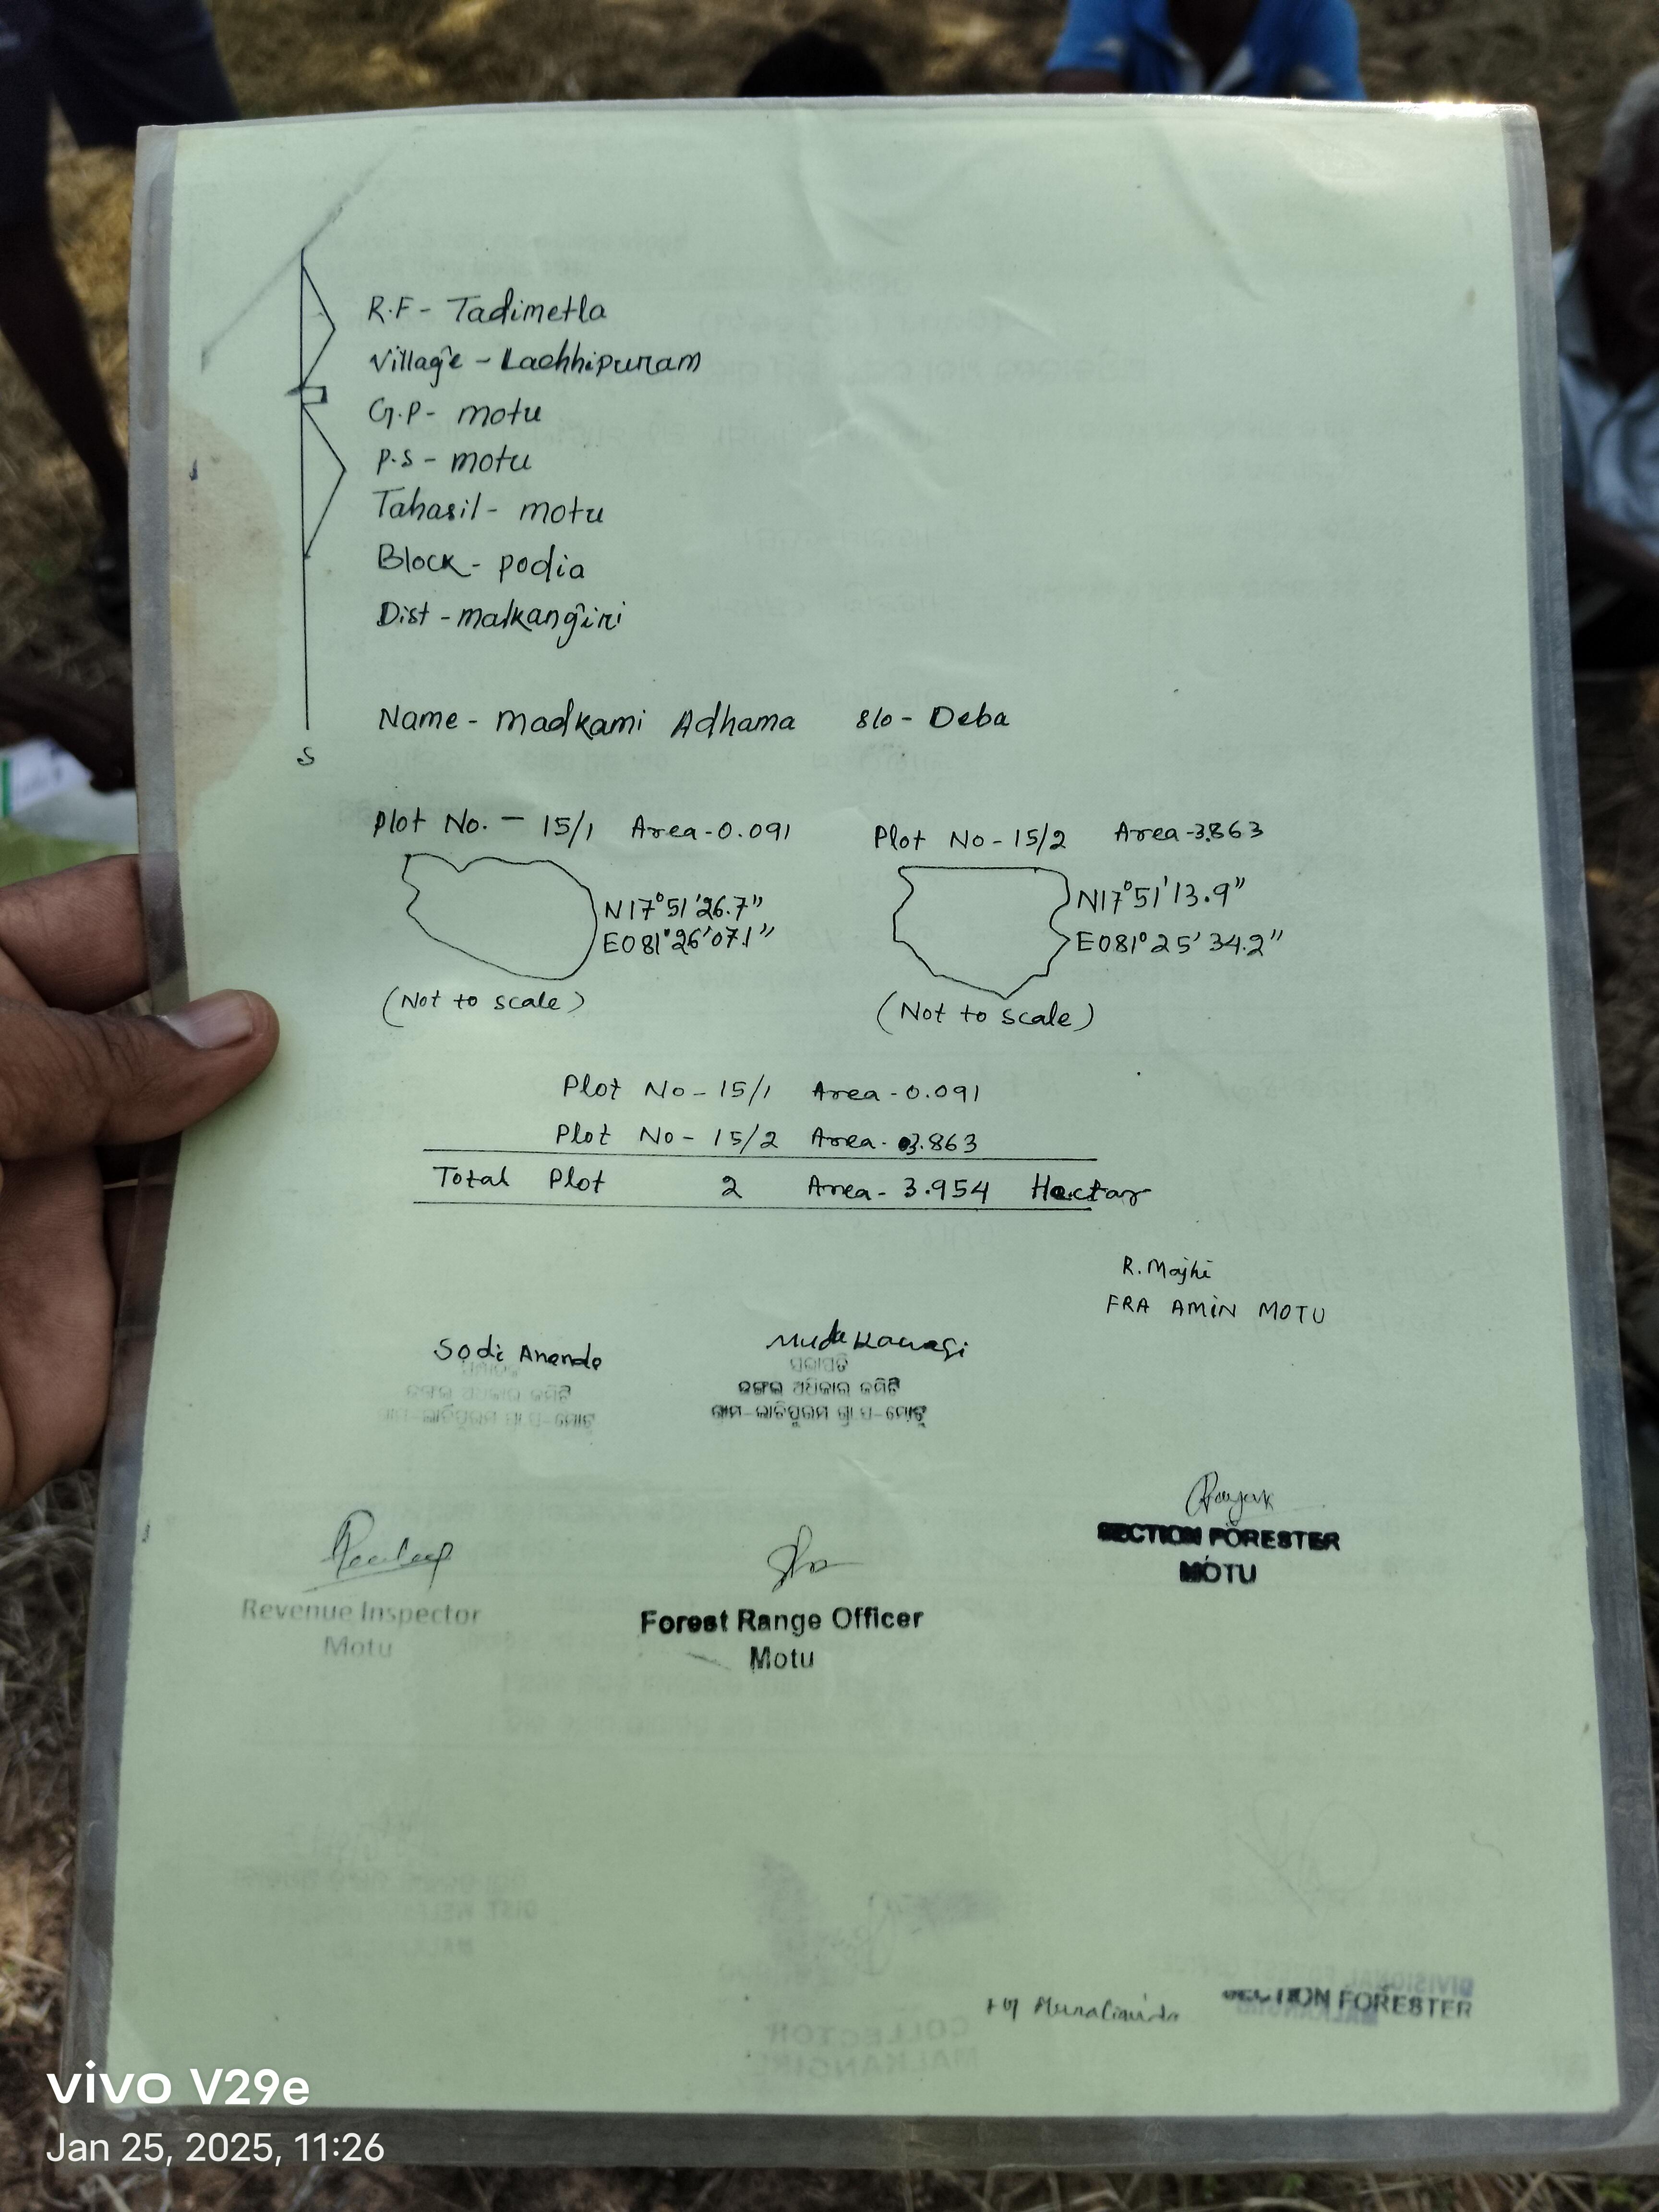 R.F - Tadimetla
Village - Lachhipuram
G.P - motu
P.S - motu
Tahasil - motu
Block - podia
Dist - malkangiri
S
Name - Madkami Adhama S/o - Deba
Plot No. - 15/1 Area - 0.091
N17°51'26.7"
E081°26'07.1"
(Not to scale)
Plot No - 15/2 Area - 3.863
N17°51'13.9"
E081°25'34.2"
(Not to scale)
Plot No - 15/1 Area - 0.091
Plot No - 15/2 Area - 3.863
Total Plot 2 Area - 3.954 Hectar
R. Majhi
FRA AMIN MOTU
Sodi Ananda
ଜଙ୍ଗଲ ଅଧିକାର କମିଟି
ଗ୍ରାମ-ଲାଚିପୁରମ ଗ୍ରା.ପ-ମୋଟୁ
ସଭାପତି
ଜଙ୍ଗଲ ଅଧିକାର କମିଟି
ଗ୍ରାମ-ଲାଚିପୁରମ ଗ୍ରା.ପ-ମୋଟୁ
SECTION FORESTER
MOTU
Revenue Inspector
Motu
Forest Range Officer
Motu
SECTION FORESTER
COLLECTOR
MALKANGIRI
vivo V29e
Jan 25, 2025, 11:26